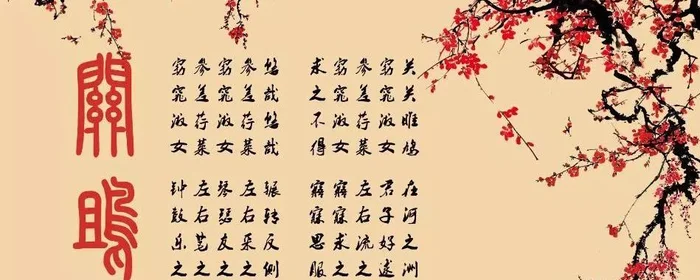 關鴡
关关雎鸠 在河之洲
窈窕淑女 君子好逑
参差荇菜 左右流之
窈窕淑女 寤寐求之
求之不得 寤寐思服
悠哉悠哉 辗转反侧
参差荇菜 左右采之
窈窕淑女 琴瑟友之
参差荇菜 左右芼之
窈窕淑女 钟鼓乐之